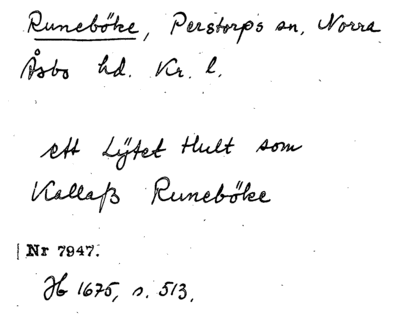 Runeböke, Perstorps sn, Norra
Åsbo hd. Kr. l.
ett Lÿtet Hult som
Kallaß Runeböke
Nr 7947.
Jb 1675, s. 513.